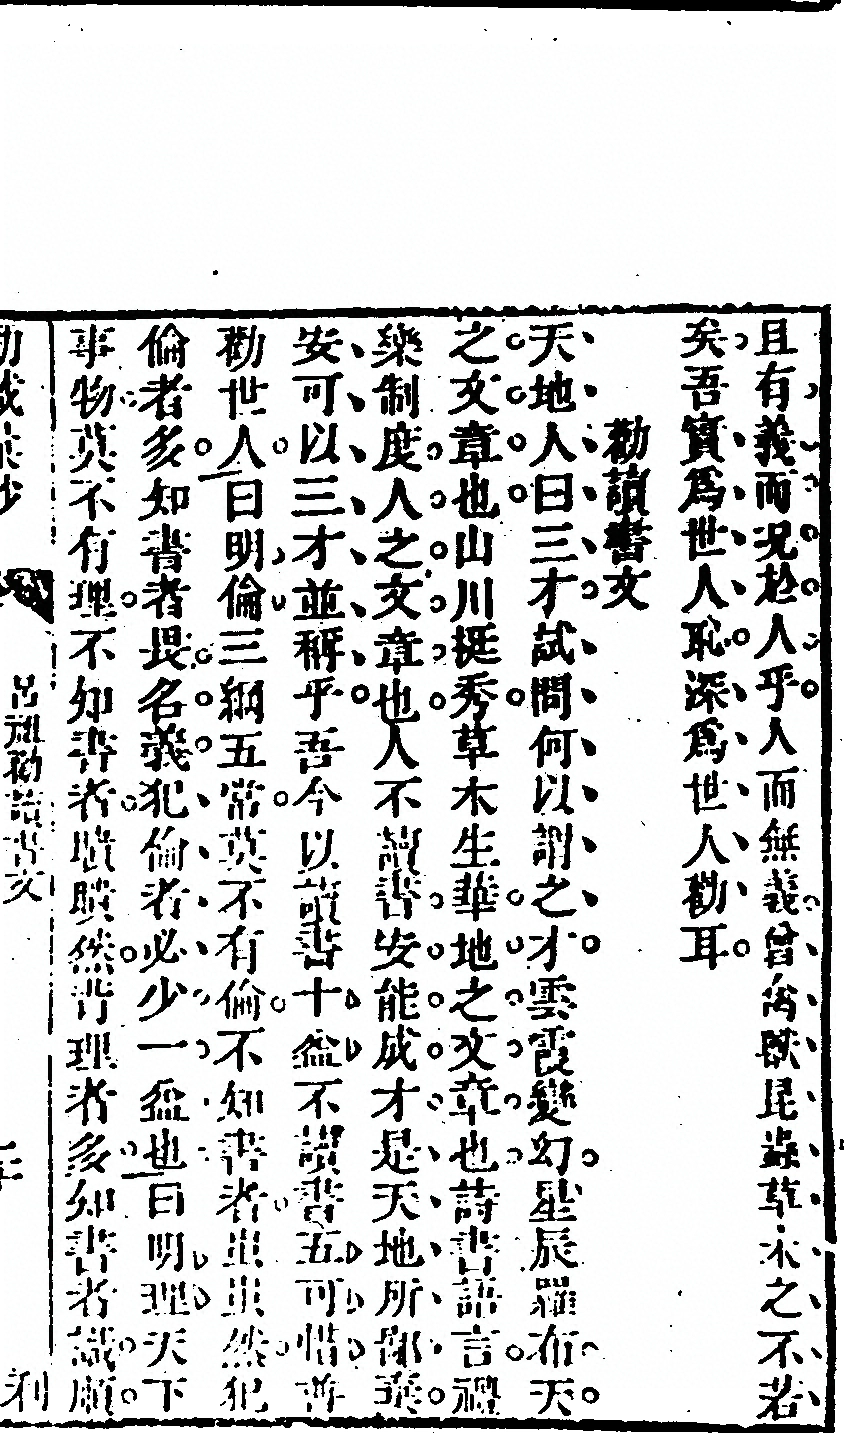 且有義而况於人乎人而無義曾禽獸昆蟲草木之不若
矣吾實爲世人恥深爲世人勸耳
勸讀書文
天地人曰三才試問何以謂之才雲霞變幻星辰羅布天
之文章也山川挺秀草木生華地之文章也詩書語言禮
樂制度人之文章也人不讀書安能成才是天地所鄙棄
安可以三才並稱乎吾今以讀書十益不讀書五可惜普
勸世人一曰明倫三綱五常莫不有倫不知書者蚩蚩然犯
倫者多知書者畏名義犯倫者必少一益也一曰明理天下
事物莫不有理不知書者聵聵然背理者多知書者識順
呂祖勸讀書文
利